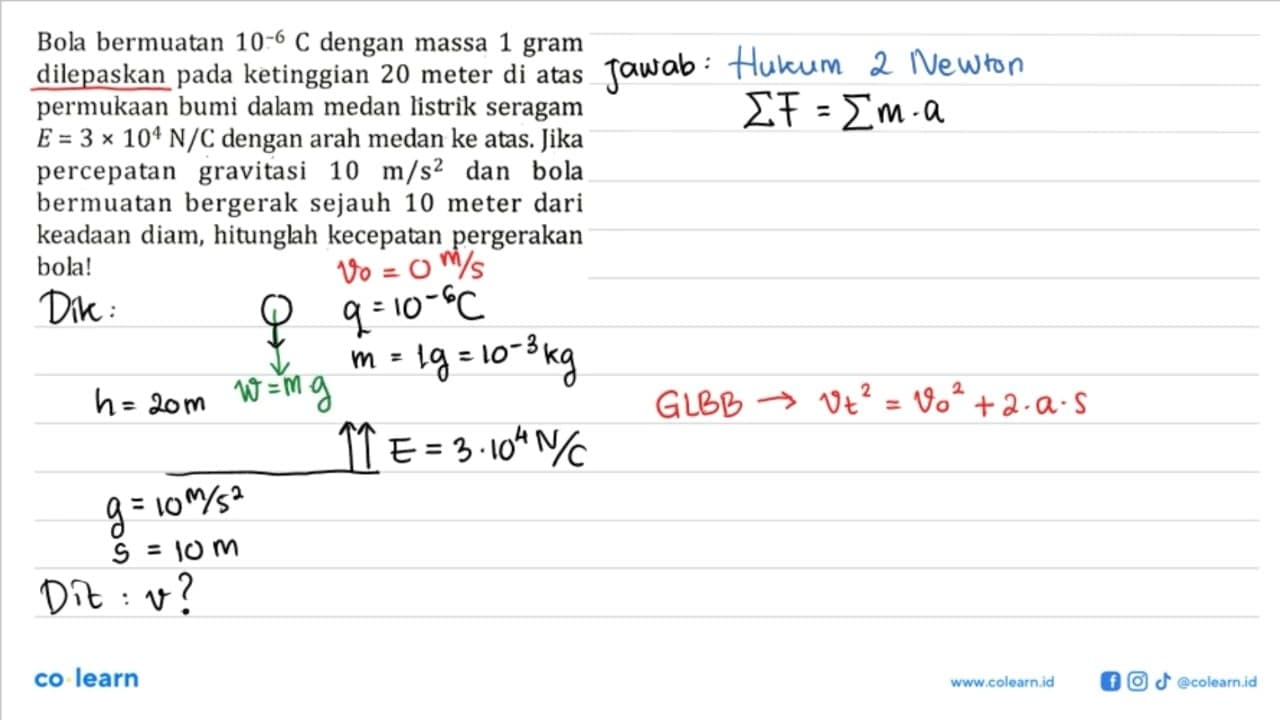 Bola bermuatan 10⁻⁶ C dengan massa 1 gram
dilepaskan pada ketinggian 20 meter di atas
permukaan bumi dalam medan listrik seragam
E = 3 × 10⁴ N/C dengan arah medan ke atas. Jika
percepatan gravitasi 10 m/s² dan bola
bermuatan bergerak sejauh 10 meter dari
keadaan diam, hitunglah kecepatan pergerakan
bola!
v₀ = 0 m/s
Dik :
q = 10⁻⁶ C
m = 1g = 10⁻³ kg
w = m.g
h = 20 m
E = 3 · 10⁴ N/C
g = 10 m/s²
s = 10 m
Dit : v?
Jawab : Hukum 2 Newton
ΣF = Σm · a
GLBB → vₜ² = v₀² + 2 · a · s
co learn
www.colearn.id
@colearn.id